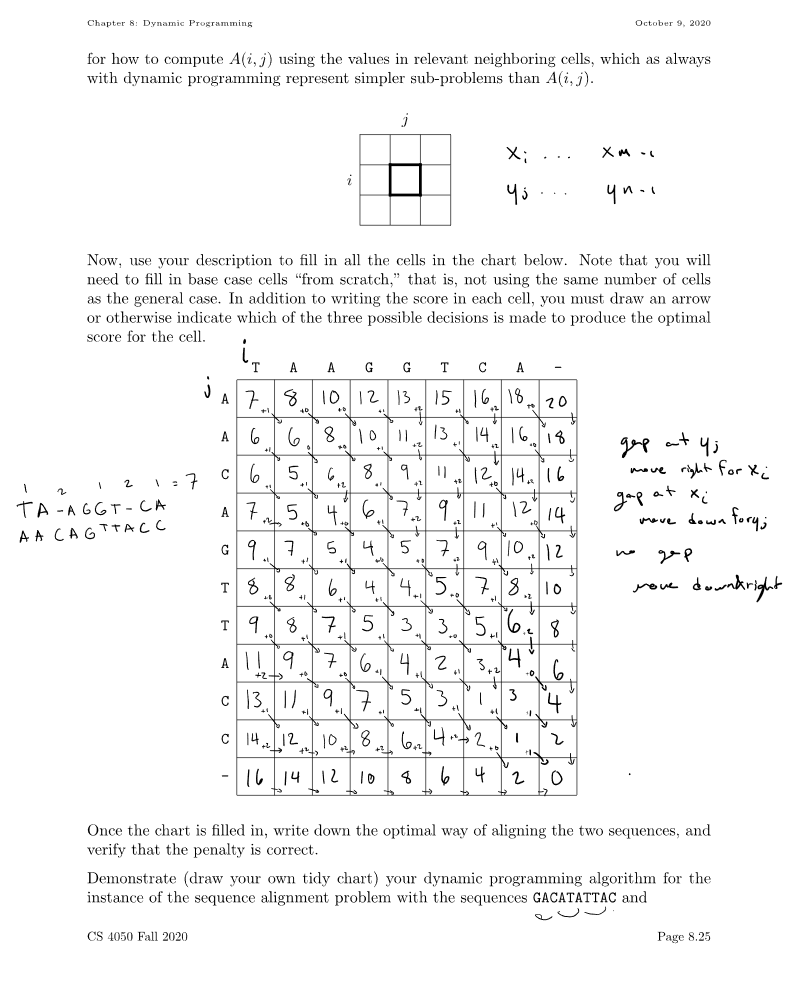 Chapter 8: Dynamic Programming October 9, 2020
for how to compute A(i, j) using the values in relevant neighboring cells, which as always
with dynamic programming represent simpler sub-problems than A(i, j).
j
i
xi ... xm-1
yj ... yn-1
Now, use your description to fill in all the cells in the chart below. Note that you will
need to fill in base case cells “from scratch,” that is, not using the same number of cells
as the general case. In addition to writing the score in each cell, you must draw an arrow
or otherwise indicate which of the three possible decisions is made to produce the optimal
score for the cell.
i
T A A G G T C A -
j
A 7 +1 8 +0 10 +0 12 +1 13 +2 15 +1 16 +2 18 +0 20
A 6 +1 6 +0 8 0 10 +1 11 +2 13 +1 14 +2 16 0 18
C 6 +1 5 +1 6 +2 8 +1 9 +1 11 +2 12 +0 14 +2 16
A 7 +2 5 +0 4 +0 6 +1 7 +2 9 +2 11 +1 12 +0 14
G 9 +1 7 +1 5 +1 4 +0 5 +0 7 +2 9 +1 10 +2 12
T 8 +0 8 +1 6 +1 4 +1 4 +1 5 +0 7 +1 8 +2 10
T 9 +0 8 +1 7 +1 5 +1 3 +1 3 +0 5 +1 6 +2 8
A 11 +2 9 +0 7 +0 6 +1 4 +1 2 +1 3 +2 4 +0 6
C 13 +1 11 +1 9 +1 7 +1 5 +1 3 +1 1 +1 3 +1 4
C 14 +2 12 +2 10 +2 8 +2 6 +2 4 +2 2 +0 1 +1 2
- 16 14 12 10 8 6 4 2 0
1 2 1 2 1 = 7
TA-AGGT-CA
AACAGTTACC
gap at yj
move right for xi
gap at xi
move down for yj
no gap
move down&right
Once the chart is filled in, write down the optimal way of aligning the two sequences, and
verify that the penalty is correct.
Demonstrate (draw your own tidy chart) your dynamic programming algorithm for the
instance of the sequence alignment problem with the sequences GACATATTAC and
CS 4050 Fall 2020 Page 8.25